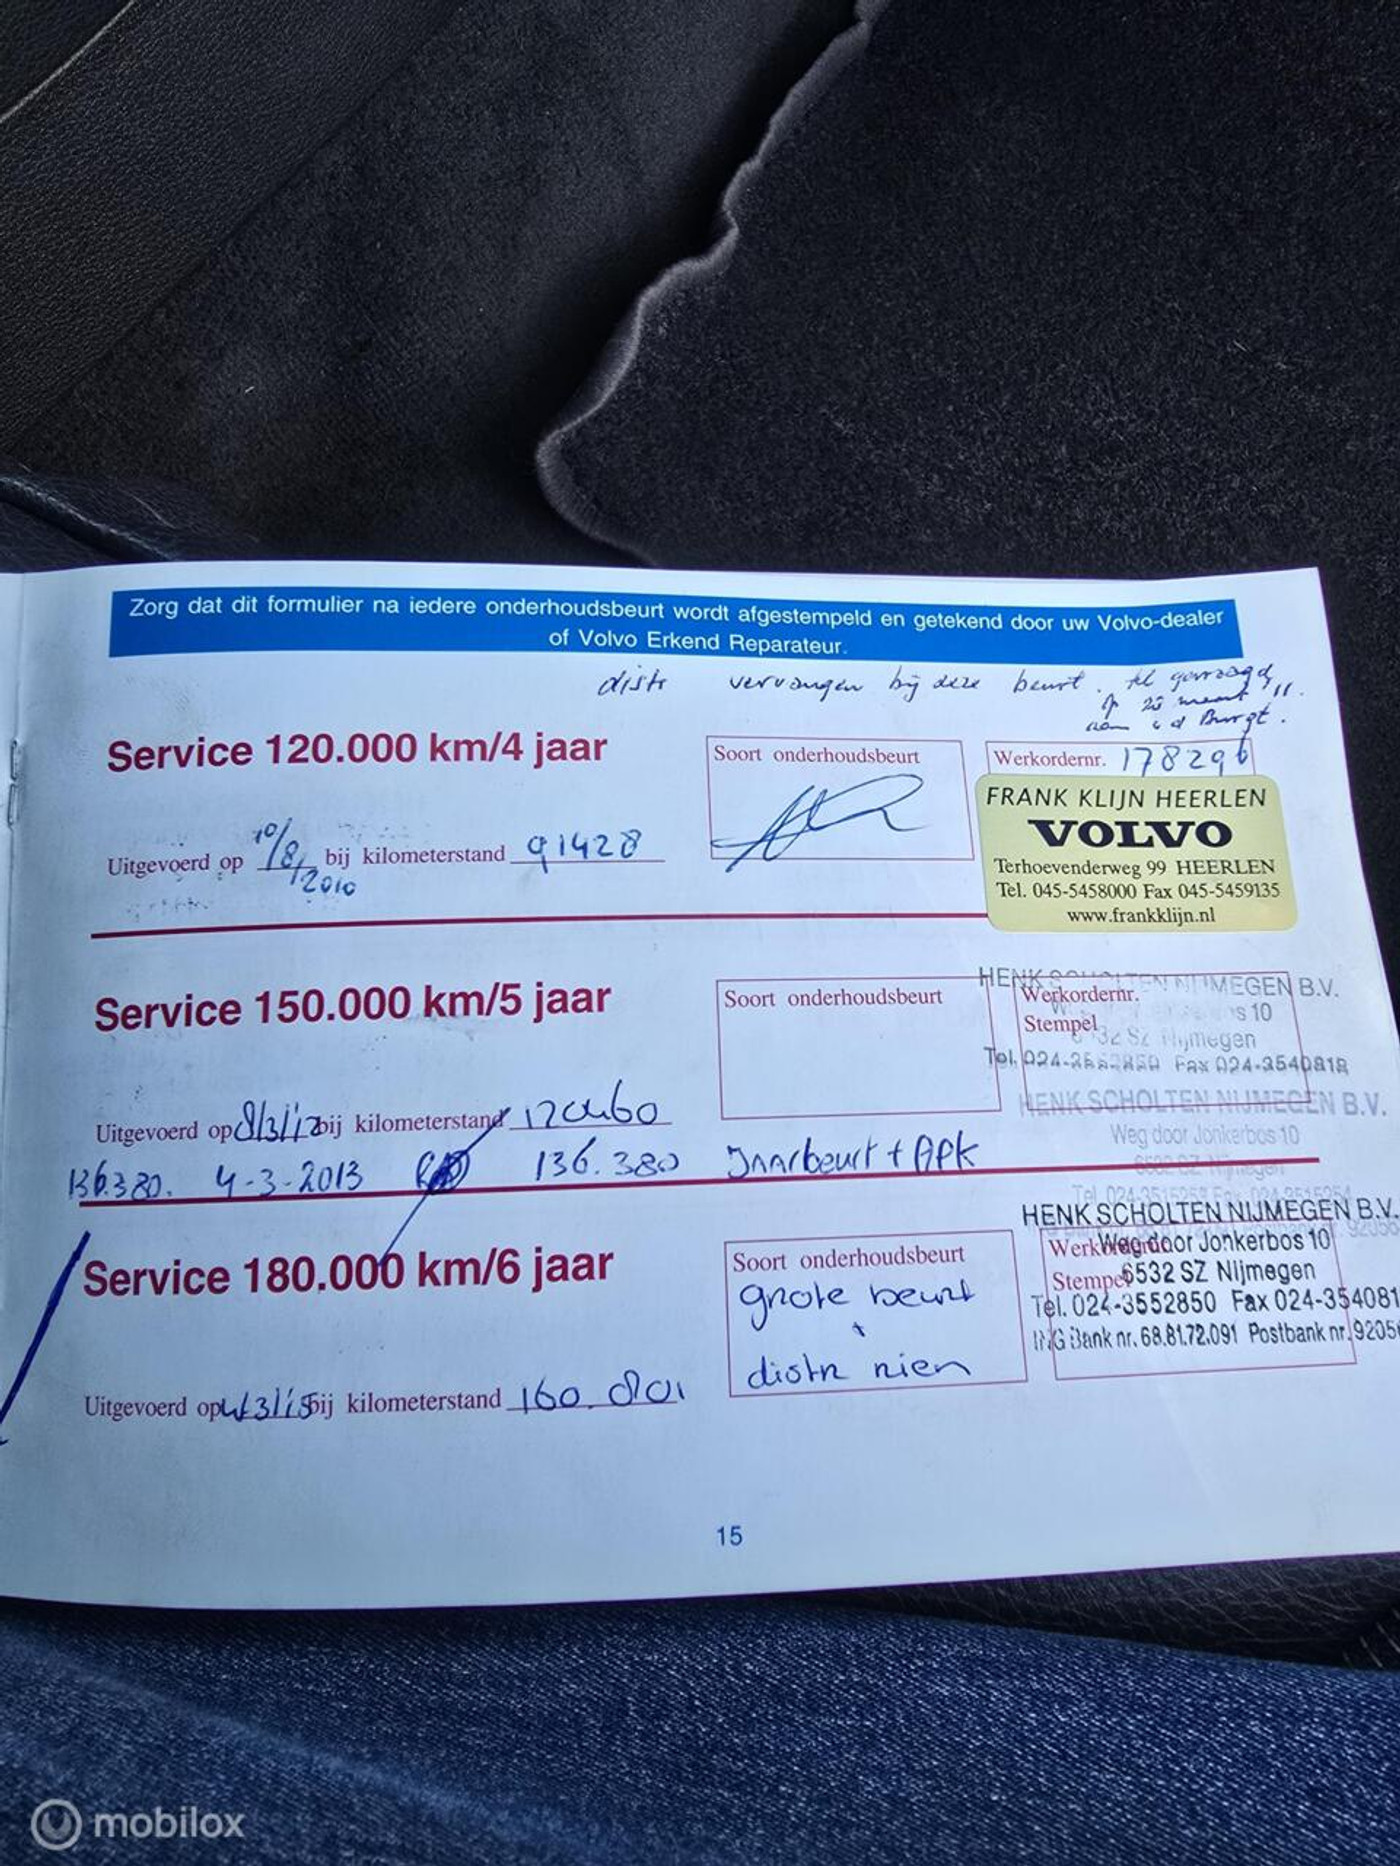 Zorg dat dit formulier na iedere onderhoudsbeurt wordt afgestempeld en getekend door uw Volvo-dealer
of Volvo Erkend Reparateur.
distr vervangen bij deze beurt.
op 25 maart '11.
Service 120.000 km/4 jaar
Soort onderhoudsbeurt
Werkordernr. 178296
FRANK KLIJN HEERLEN
VOLVO
Terhoevenderweg 99 HEERLEN
Tel. 045-5458000 Fax 045-5459135
www.frankklijn.nl
Uitgevoerd op 10/8/2010 bij kilometerstand 91428
Service 150.000 km/5 jaar
Soort onderhoudsbeurt
Werkordernr.
Stempel
HENK SCHOLTEN NIJMEGEN B.V.
Nijmegen
Tel. 024-3552850 Fax 024-3540818
HENK SCHOLTEN NIJMEGEN B.V.
Weg door Jonkerbos 10
Uitgevoerd op 8/3/12 bij kilometerstand 120460
136.380. 4-3-2013 136.380 Jaarbeurt + APK
Service 180.000 km/6 jaar
Soort onderhoudsbeurt
grote beurt
+
distr riem
HENK SCHOLTEN NIJMEGEN B.V.
Weg door Jonkerbos 10
Stempel 6532 SZ Nijmegen
Tel. 024-3552850 Fax 024-354081
ING Bank nr. 68.81.72.091 Postbank nr. 9205
Uitgevoerd op 4/3/15 bij kilometerstand 160.801
15
mobilox